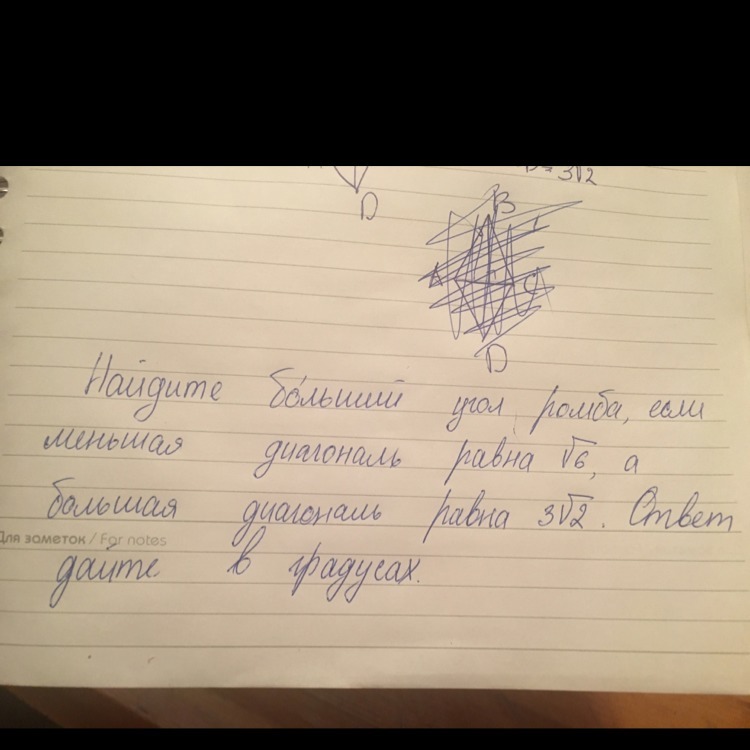 D
3√2
B
A
C
D
Найдите бо́льший угол ромба, если
меньшая диагональ равна √6, а
большая диагональ равна 3√2. Ответ
Для заметок / For notes
дайте в градусах.